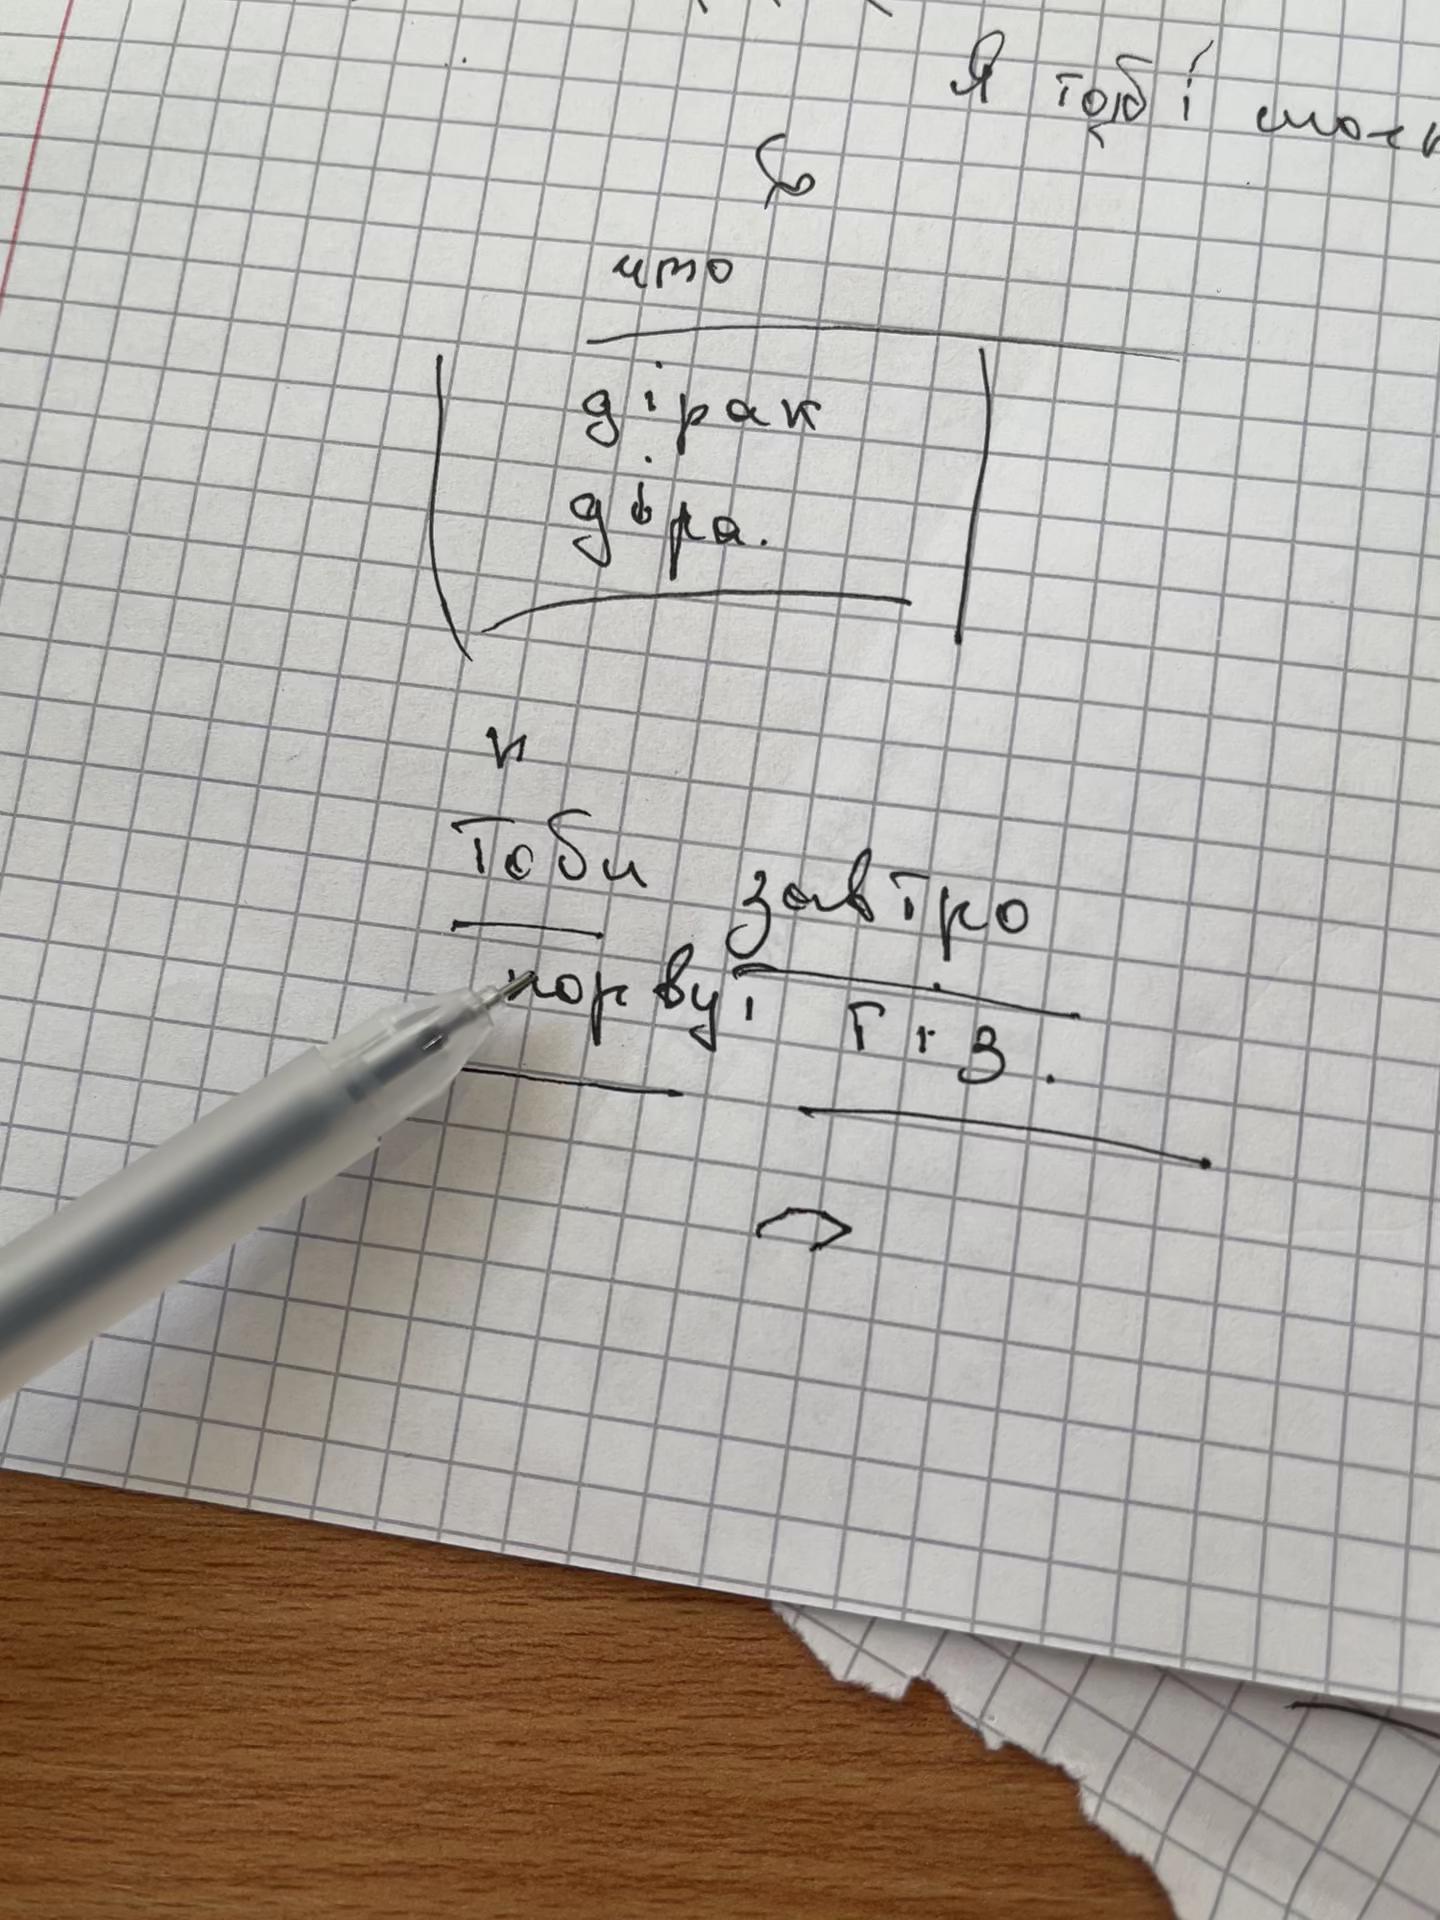 Я тобі
что
дірак
діра.
и
Тоби завтро
порву, Т і З.